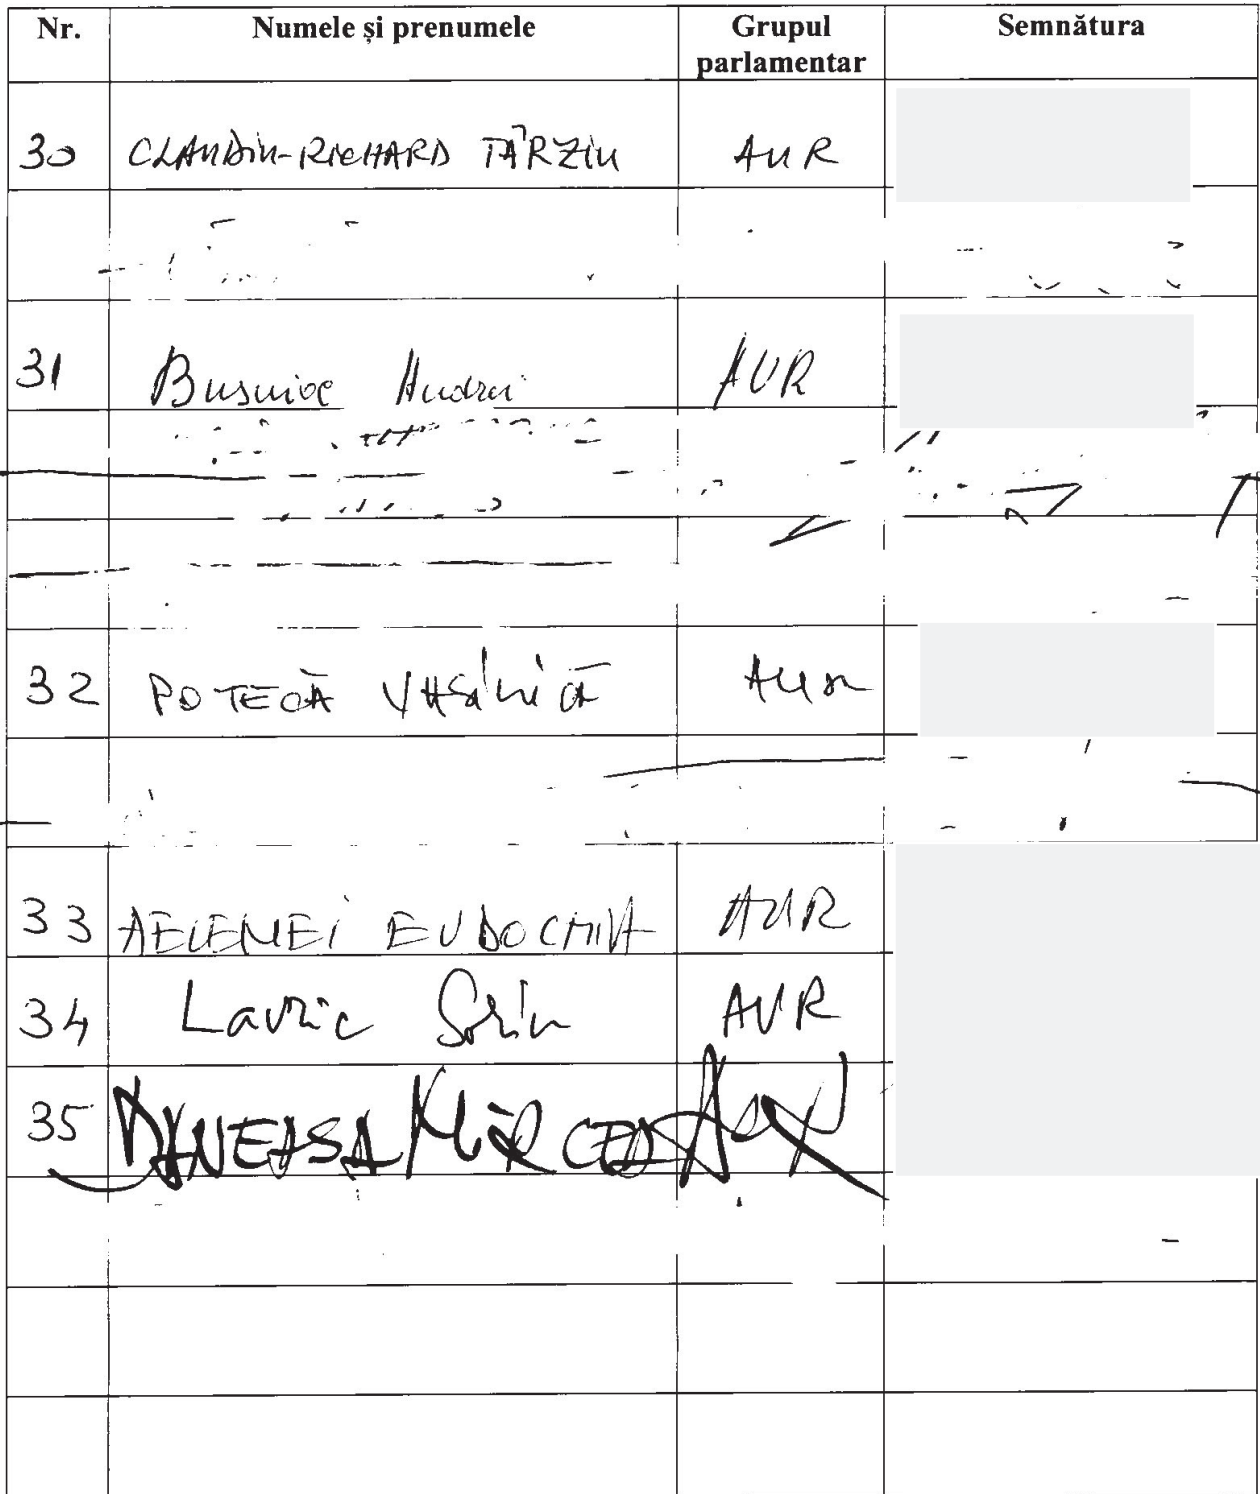 Nr. Numele și prenumele Grupul parlamentar Semnătura
30 CLAUDIU-RICHARD TÂRZIU AUR
31 Busuioc Andrei AUR
32 POTECĂ VASILICĂ AUR
33 AELENEI EVDOCHIA AUR
34 Lavric Sorin AUR
35 DĂNEASA MIRCEA AUR